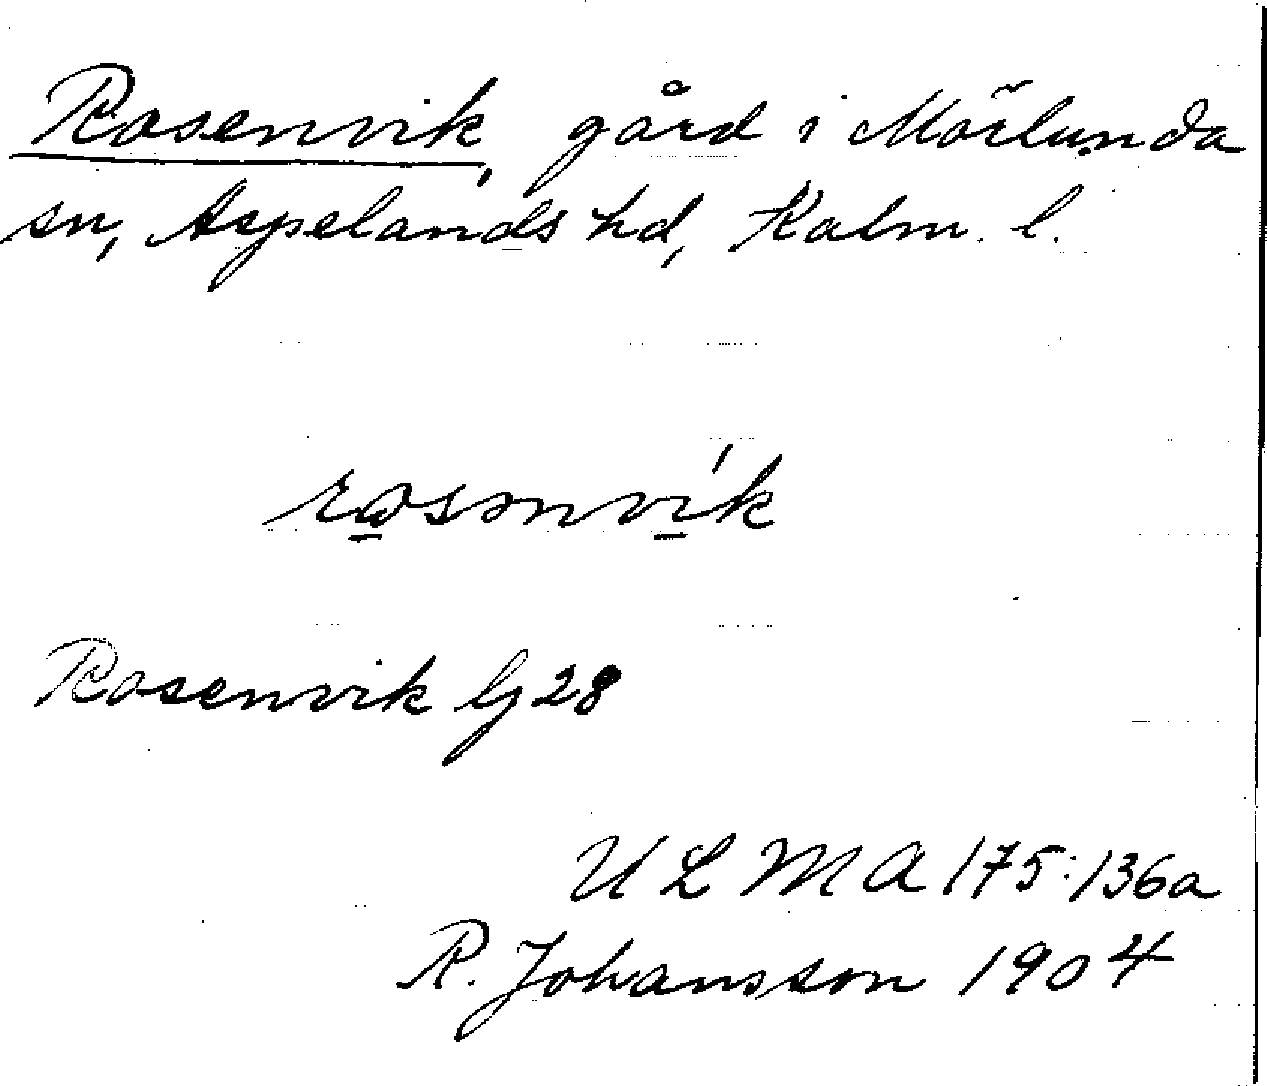 Rosenvik, gård i Mörlunda
sn, Aspelands hd, Kalm. l.
Rosenvik G 28
U L M A 175:136a
R. Johansson 1904